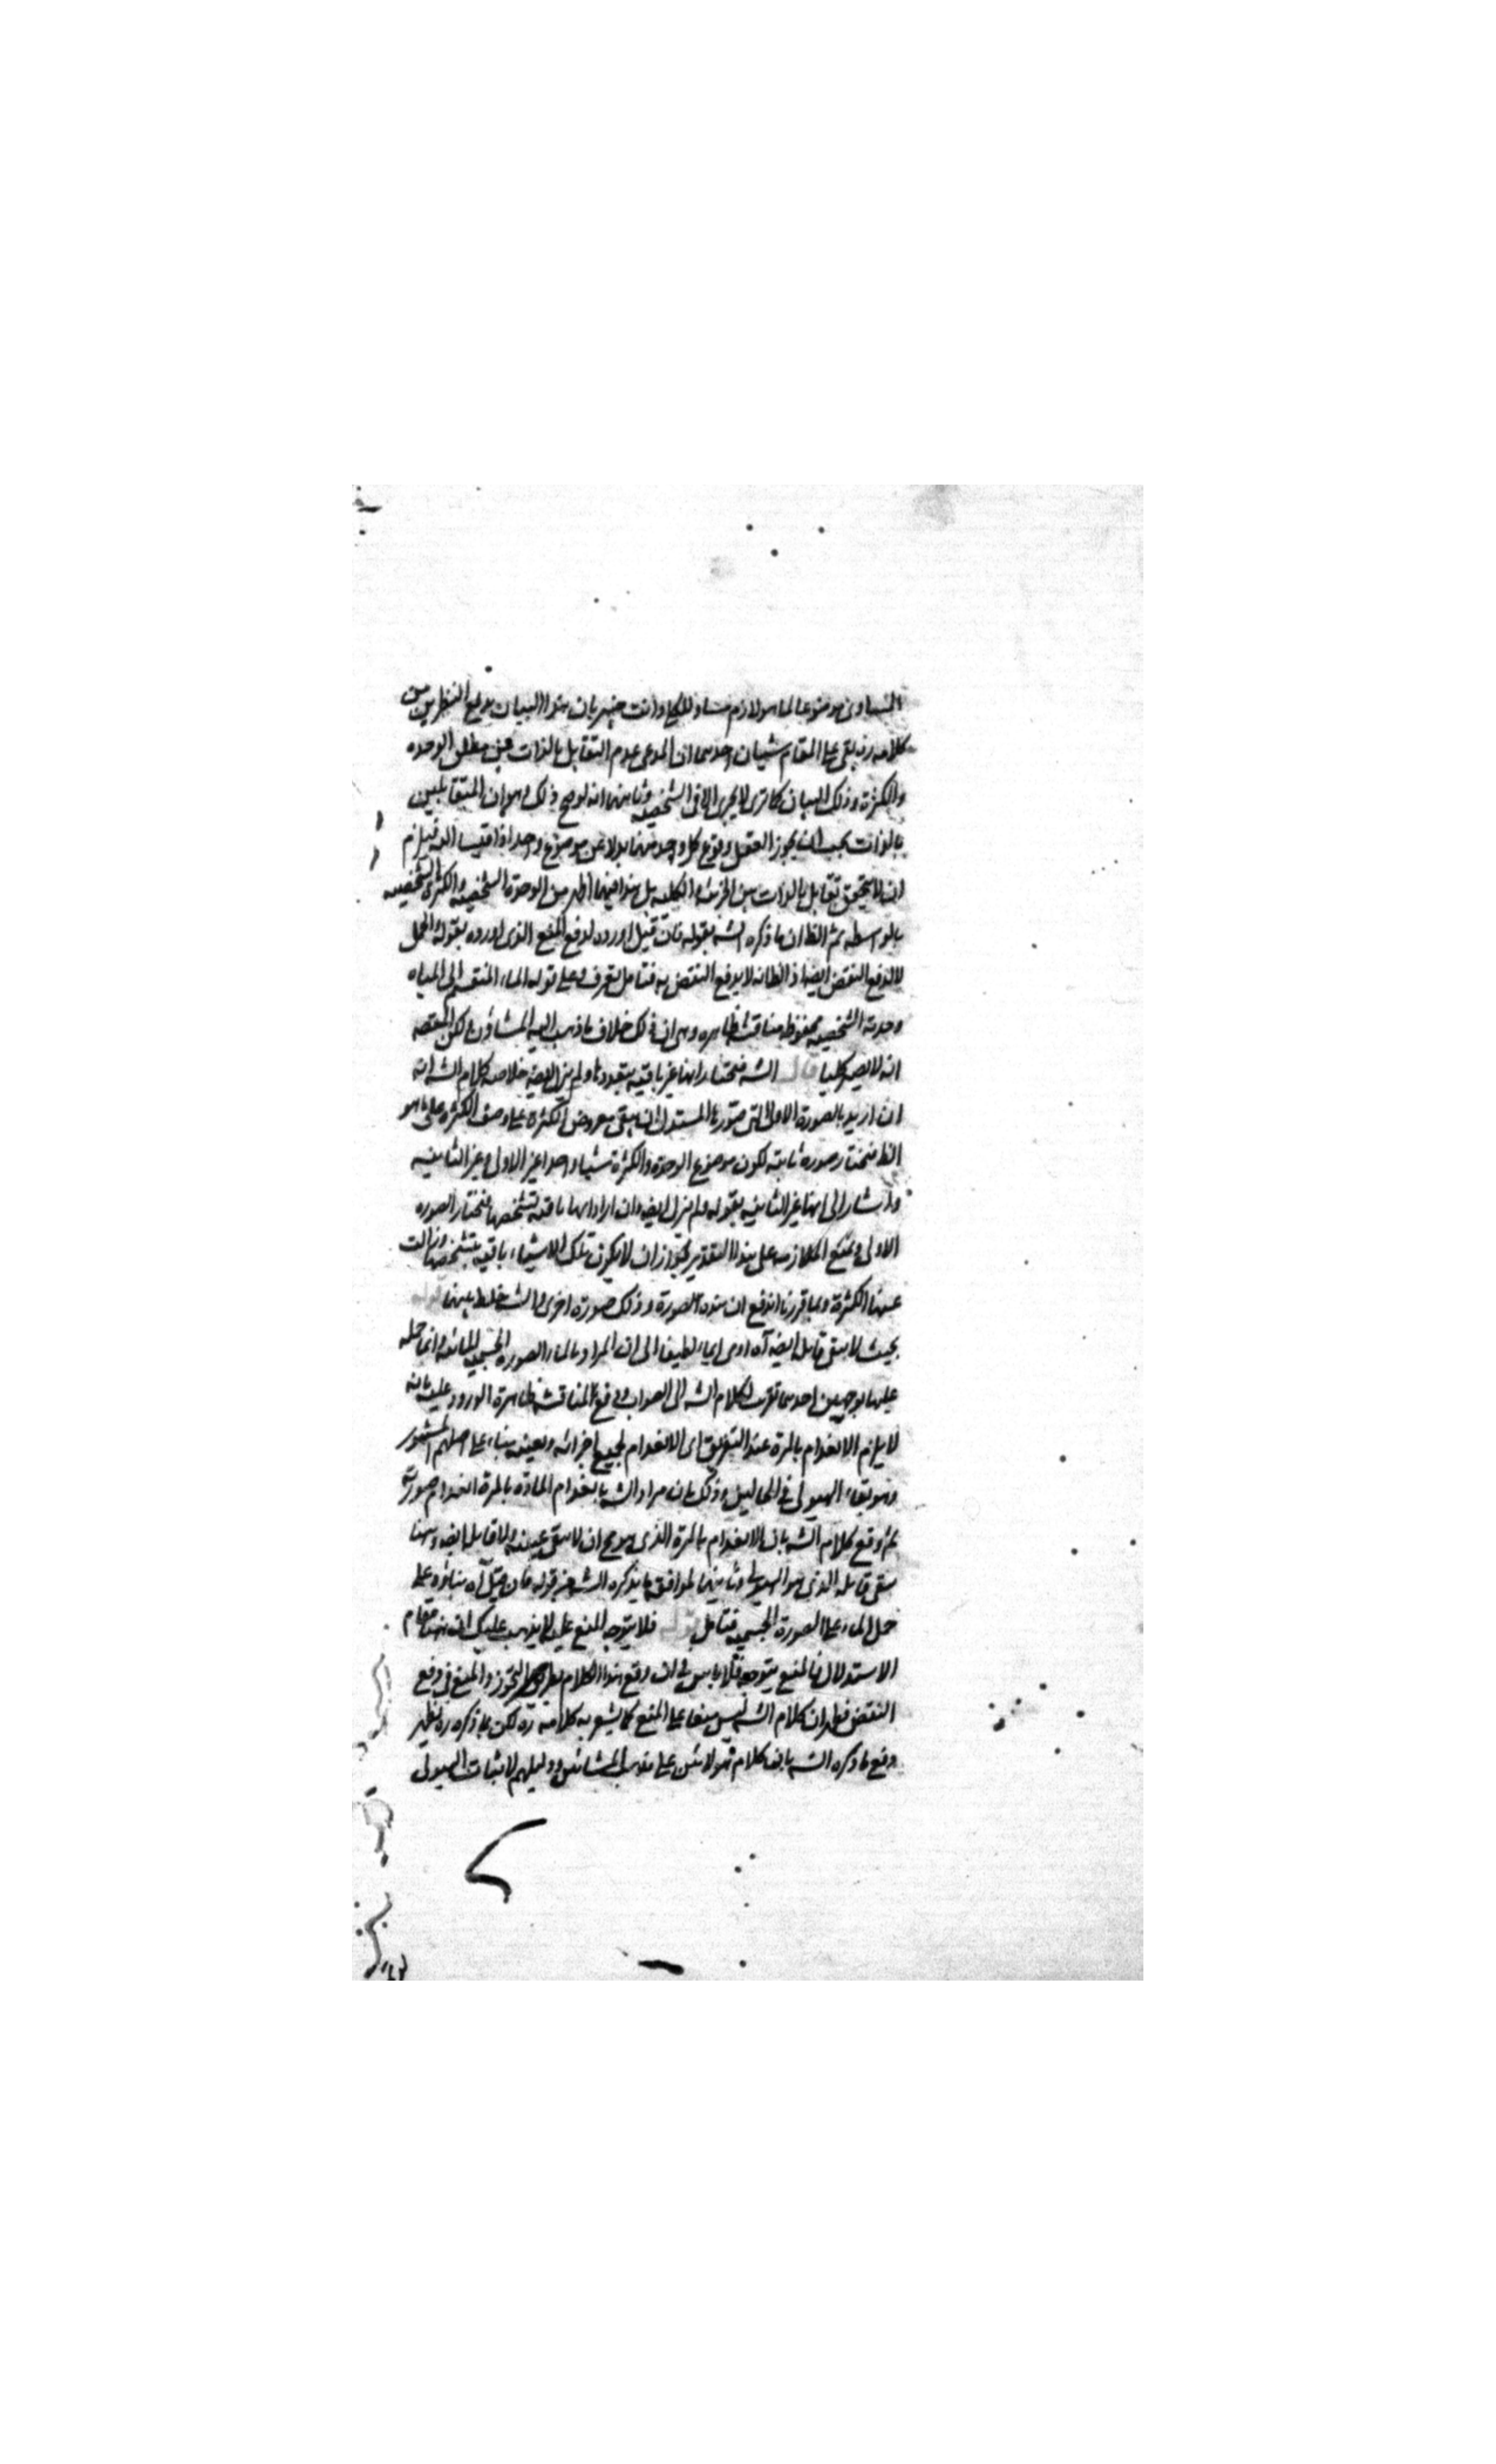 المساوى موضوعا لما هو لازم مساو للكل وانت خبير بان هذا البيان يدفع النظرين من
كلامه ره بقى على المقام شيئان احدهما ان المدعى عدم التقابل بالذات بين مطلق الوحده
والكثرة وذلك البيان كما ترى لا يجرى الا فى الشخصيه وثانيهما انه لو صح ذلك وهو ان المتقابلين
بالذات يجب ان يجوز العقل وقوع كل واحد منهما بدلا عن موضوع واحد اذا قيسا اليه فيلزم
ان لا يتحقق تقابل بالذات بين الجزئيه والكليه بل هذا فيهما اظهر من الوحدة الشخصيه والكثرة الشخصيه
بالواسطه ثم الظ ان ما ذكره الشه بقوله فان قيل اورده لدفع المنع الذى اورده بقوله المحل
لا لدفع النقض ايضا اذ الظ انه لا يدفع النقض به فتامل تعرف وعلى قوله الماء المنقسم الى المياه
وحدته الشخصيه محفوظه مناقشة ظاهره وهى ان ذلك خلاف ما ذهب اليه المشاؤن لكن المقصه
انه لا يصير كليا قال الشه فنختار انها غير باقيه بتعددها ولم يزل ايضه خلاصه كلام الشه انه
ان اريد بالصورة الاولى التى صورها المستدل ان يبقى معروض الكثرة على وصف الكثرة على ما هو
الظ فنختار صورة ثابته لكون موضوع الوحدة والكثرة شيئا واحدا غير الاولى وغير الثانيه
واشار الى انها غير الثانيه بقوله ولم يزل ايضه وان اراد انها باقيه بتشخصها فنختار الصوره
الاولى ونمنع الملازمه على هذا التقدير لجواز ان لا يكون تلك الاشياء باقيه بتشخصها وزالت
عنها الكثرة وبما قررنا اندفع ان هذه الصورة وذلك صورة اخرى والشه خلط بينهما قوله
بحيث لا يبقى قابله ايضه آه اومى ايماء لطيفا الى ان المراد بالماء الصوره الجسميه للمائيه وانما حمله
عليها بوجهين احدهما تقريب لكلام الشه الى الصواب ودفع المناقشه ظاهرة الورود عليه بانه
لا يلزم الانعدام بالمرة عند التفريق اى الانعدام لجميع اجزائه وبعينه بناء على اصلهم المشهور
وهو بقاء الهيولى فى الحالين وذلك بان مراد الشه بانعدام المادة بالمرة انعدام صورته
ثم وقع كلام الشه بان الانعدام بالمرة الذى هو مح ان لا يبقى عينه ولا قابله ايضه وههنا
يبقى قابله الذى هو الهيولى وثانيهما لموافق ما يذكره الشه فى قوله فان قيل آه بناؤه على
حمل الماء على الصورة الجسميه فتامل قوله فلا يتوجه المنع عليه لا يذهب عليك ان ههنا مقام
الاستدلال فالمنع يتوجه فلا باس فى ان وقع هذا الكلام بطريق التجوز والمنع فى دفع
النقض فظهر ان كلام الشه ليس منعا على المنع كما يشعر به كلامه ره لكن ما ذكره ره يظهر
دفع ما ذكره الشه بانه كلام هؤلائين على مذهب المشائين ودليلهم لاثبات الهيولى